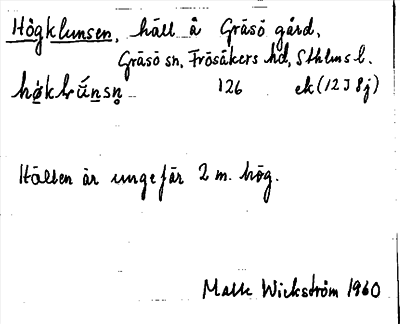 Högklunsen, häll å Gräsö gård,
Gräsö sn, Frösåkers hd, Sthlms l.
126 ek (12J8j)
Hällen är ungefär 2 m. hög.
Wickström 1960